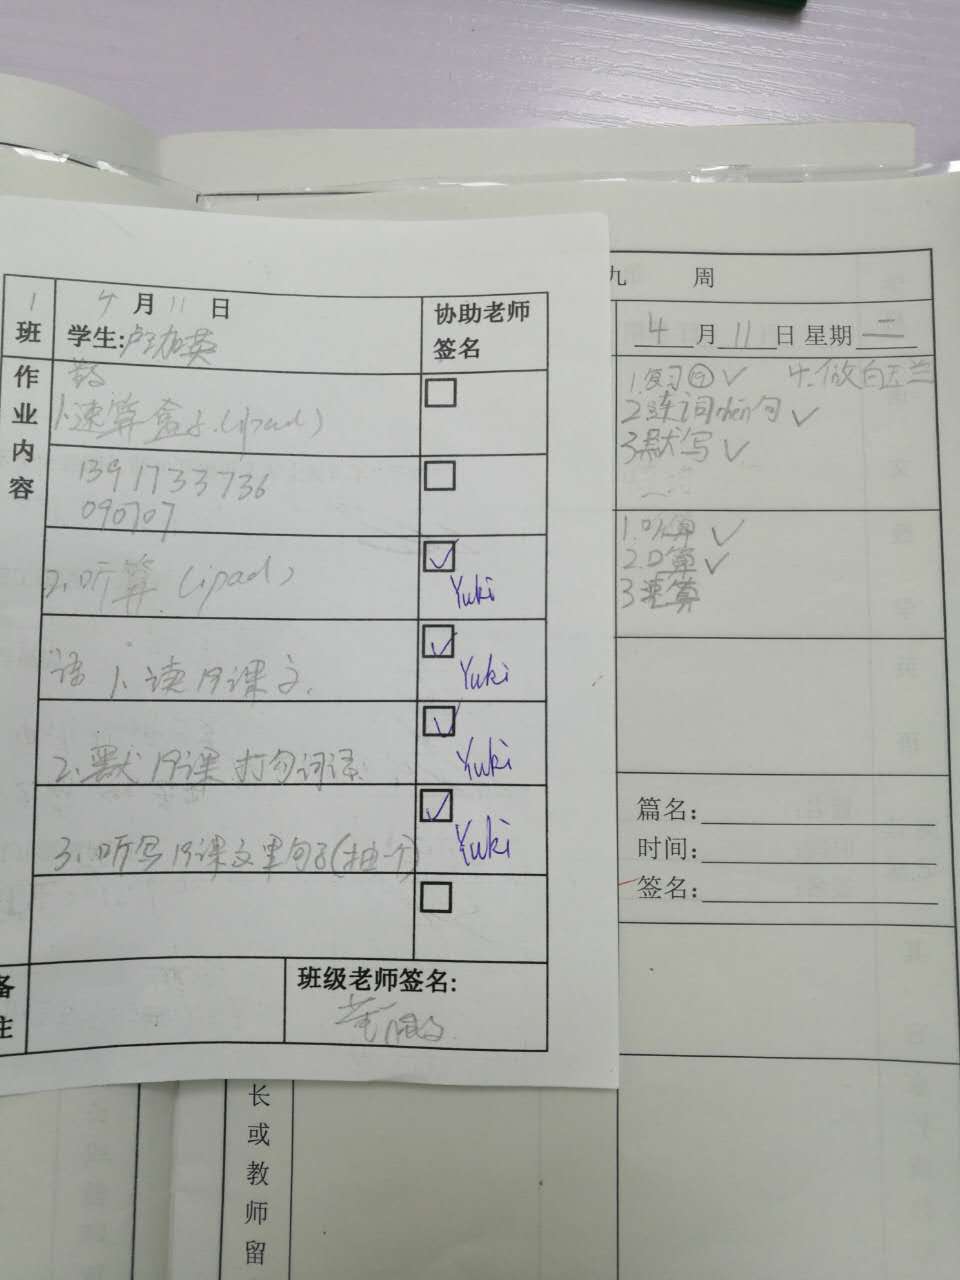 1 班
4 月 11 日
学生:
协助老师
签名
作业内容
数
1.速算盒子.(ipad)
13917733736
090707
2.听算.(ipad)
Yuki
语 1.读19课文.
Yuki
2.默19课打勾词语.
Yuki
3.听写19课文里句子(抽一个)
Yuki
备注
班级老师签名:
九 周
4 月 11 日 星期 二
1.复习⑲ ✓ 4.做白玉兰
2.练词hén句 ✓
3默写 ✓
1.听算 ✓
2.口算 ✓
3速算
篇名:
时间:
签名:
长或教师留